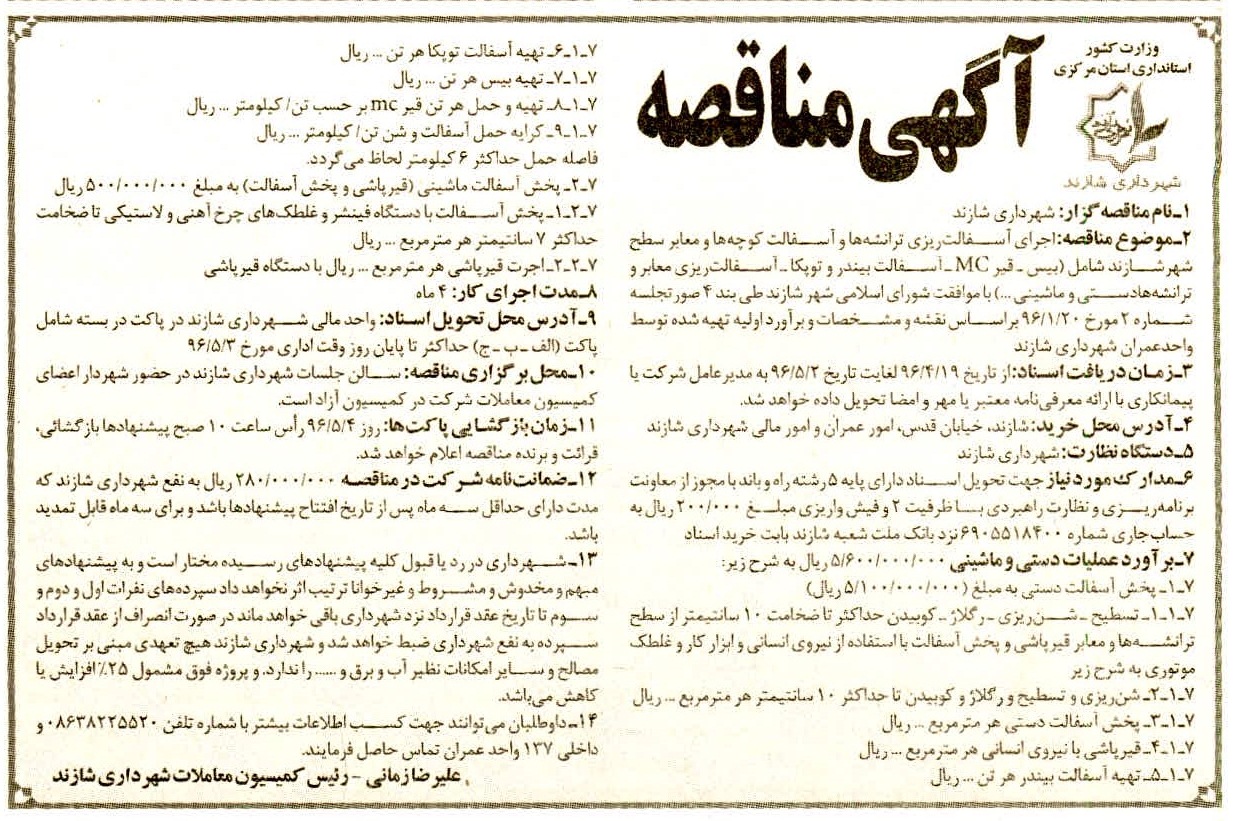 وزارت کشور
استانداری استان مرکزی
شهرداری شازند
آگهی مناقصه
۱ـ نام مناقصه گزار: شهرداری شازند
۲ـ موضوع مناقصه: اجرای آسفالت‌ریزی ترانشه‌ها و آسفالت کوچه‌ها و معابر سطح
شهر شازند شامل (بیس ـ قیر MC ـ آسفالت بیندر و توپکا ـ آسفالت‌ریزی معابر و
ترانشه‌ها دستی و ماشینی ...) با موافقت شورای اسلامی شهر شازند طی بند ۴ صورتجلسه
شماره ۲ مورخ ۹۶/۱/۲۰ براساس نقشه و مشخصات و برآورد اولیه تهیه شده توسط
واحد عمران شهرداری شازند
۳ـ زمان دریافت اسناد: از تاریخ ۹۶/۴/۱۹ لغایت تاریخ ۹۶/۵/۲ به مدیرعامل شرکت یا
پیمانکاری با ارائه معرفی‌نامه معتبر یا مهر و امضا تحویل داده خواهد شد.
۴ـ آدرس محل خرید: شازند، خیابان قدس، امور عمران و امور مالی شهرداری شازند
۵ـ دستگاه نظارت: شهرداری شازند
۶ـ مدارک مورد نیاز جهت تحویل اسناد دارای پایه ۵ رشته راه و باند با مجوز از معاونت
برنامه‌ریزی و نظارت راهبردی با ظرفیت ۲ و فیش واریزی مبلغ ۲۰۰/۰۰۰ ریال به
حساب جاری شماره ۶۹۰۵۵۱۸۴۰۰ نزد بانک ملت شعبه شازند بابت خرید اسناد
۷ـ برآورد عملیات دستی و ماشینی ۵/۶۰۰/۰۰۰/۰۰۰ ریال به شرح زیر:
۷ـ۱ـ پخش آسفالت دستی به مبلغ (۵/۱۰۰/۰۰۰/۰۰۰ ریال)
۷ـ۱ـ۱ـ تسطیح ـ شن‌ریزی ـ رگلاژ ـ کوبیدن حداکثر تا ضخامت ۱۰ سانتیمتر از سطح
ترانشه‌ها و معابر قیرپاشی و پخش آسفالت با استفاده از نیروی انسانی و ابزار کار و غلطک
موتوری به شرح زیر
۷ـ۱ـ۲ـ شن‌ریزی و تسطیح و رگلاژ و کوبیدن تا حداکثر ۱۰ سانتیمتر هر مترمربع ... ریال
۷ـ۱ـ۳ـ پخش آسفالت دستی هر مترمربع ... ریال
۷ـ۱ـ۴ـ قیرپاشی با نیروی انسانی هر مترمربع ... ریال
۷ـ۱ـ۵ـ تهیه آسفالت بیندر هر تن ... ریال
۷ـ۱ـ۶ـ تهیه آسفالت توپکا هر تن ... ریال
۷ـ۱ـ۷ـ تهیه بیس هر تن ... ریال
۷ـ۱ـ۸ـ تهیه و حمل هر تن قیر mc بر حسب تن/ کیلومتر ... ریال
۷ـ۱ـ۹ـ کرایه حمل آسفالت و شن تن/ کیلومتر ... ریال
فاصله حمل حداکثر ۶ کیلومتر لحاظ می‌گردد.
۷ـ۲ـ پخش آسفالت ماشینی (قیرپاشی و پخش آسفالت) به مبلغ ۵۰۰/۰۰۰/۰۰۰ ریال
۷ـ۲ـ۱ـ پخش آسفالت با دستگاه فینشر و غلطک‌های چرخ آهنی و لاستیکی تا ضخامت
حداکثر ۷ سانتیمتر هر مترمربع ... ریال
۷ـ۲ـ۲ـ اجرت قیرپاشی هر مترمربع ... ریال با دستگاه قیرپاشی
۸ـ مدت اجرای کار: ۴ ماه
۹ـ آدرس محل تحویل اسناد: واحد مالی شهرداری شازند در پاکت در بسته شامل
پاکت (الف ـ ب ـ ج) حداکثر تا پایان روز وقت اداری مورخ ۹۶/۵/۳
۱۰ـ محل برگزاری مناقصه: سالن جلسات شهرداری شازند در حضور شهردار اعضای
کمیسیون معاملات شرکت در کمیسیون آزاد است.
۱۱ـ زمان بازگشایی پاکت‌ها: روز ۹۶/۵/۴ رأس ساعت ۱۰ صبح پیشنهادها بازگشائی،
قرائت و برنده مناقصه اعلام خواهد شد.
۱۲ـ ضمانت‌نامه شرکت در مناقصه ۲۸۰/۰۰۰/۰۰۰ ریال به نفع شهرداری شازند که
مدت دارای حداقل سه ماه پس از تاریخ افتتاح پیشنهادها باشد و برای سه ماه قابل تمدید
باشد.
۱۳ـ شهرداری در رد یا قبول کلیه پیشنهادهای رسیده مختار است و به پیشنهادهای
مبهم و مخدوش و مشروط و غیرخوانا ترتیب اثر نخواهد داد سپرده‌های نفرات اول و دوم و
سوم تا تاریخ عقد قرارداد نزد شهرداری باقی خواهد ماند در صورت انصراف از عقد قرارداد
سپرده به نفع شهرداری ضبط خواهد شد و شهرداری شازند هیچ تعهدی مبنی بر تحویل
مصالح و سایر امکانات نظیر آب و برق و ...... را ندارد. و پروژه فوق مشمول ۲۵٪ افزایش یا
کاهش می‌باشد.
۱۴ـ داوطلبان می‌توانند جهت کسب اطلاعات بیشتر با شماره تلفن ۰۸۶۳۸۲۲۵۵۲۰ و
داخلی ۱۳۷ واحد عمران تماس حاصل فرمایند.
علیرضا زمانی - رئیس کمیسیون معاملات شهرداری شازند